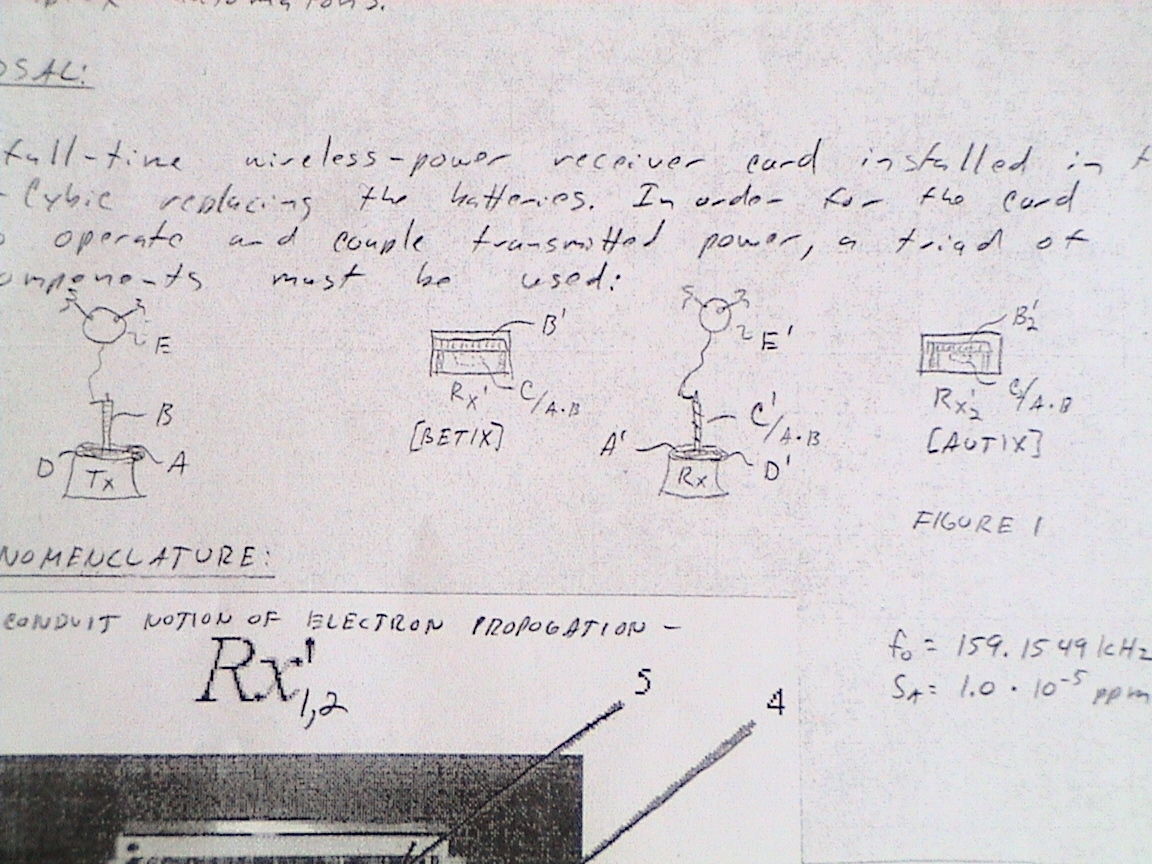 OSAL:
full-time wireless-power receiver card installed in
Cybic replacing the batteries. In order for the card
operate and couple transmitted power, a triad of
omponents must be used:
E
B
D
A
Tx
B'
C/A·B
Rx'
[BETIX]
E'
C'/A·B
A'
D'
Rx
B2'
C/A·B
Rx2'
[AUTIX]
FIGURE 1
NOMENCLATURE:
CONDUIT NOTION OF ELECTRON PROPOGATION -
Rx'1,2
5
4
fo = 159.1549 kHz
SA = 1.0 · 10-5 ppm